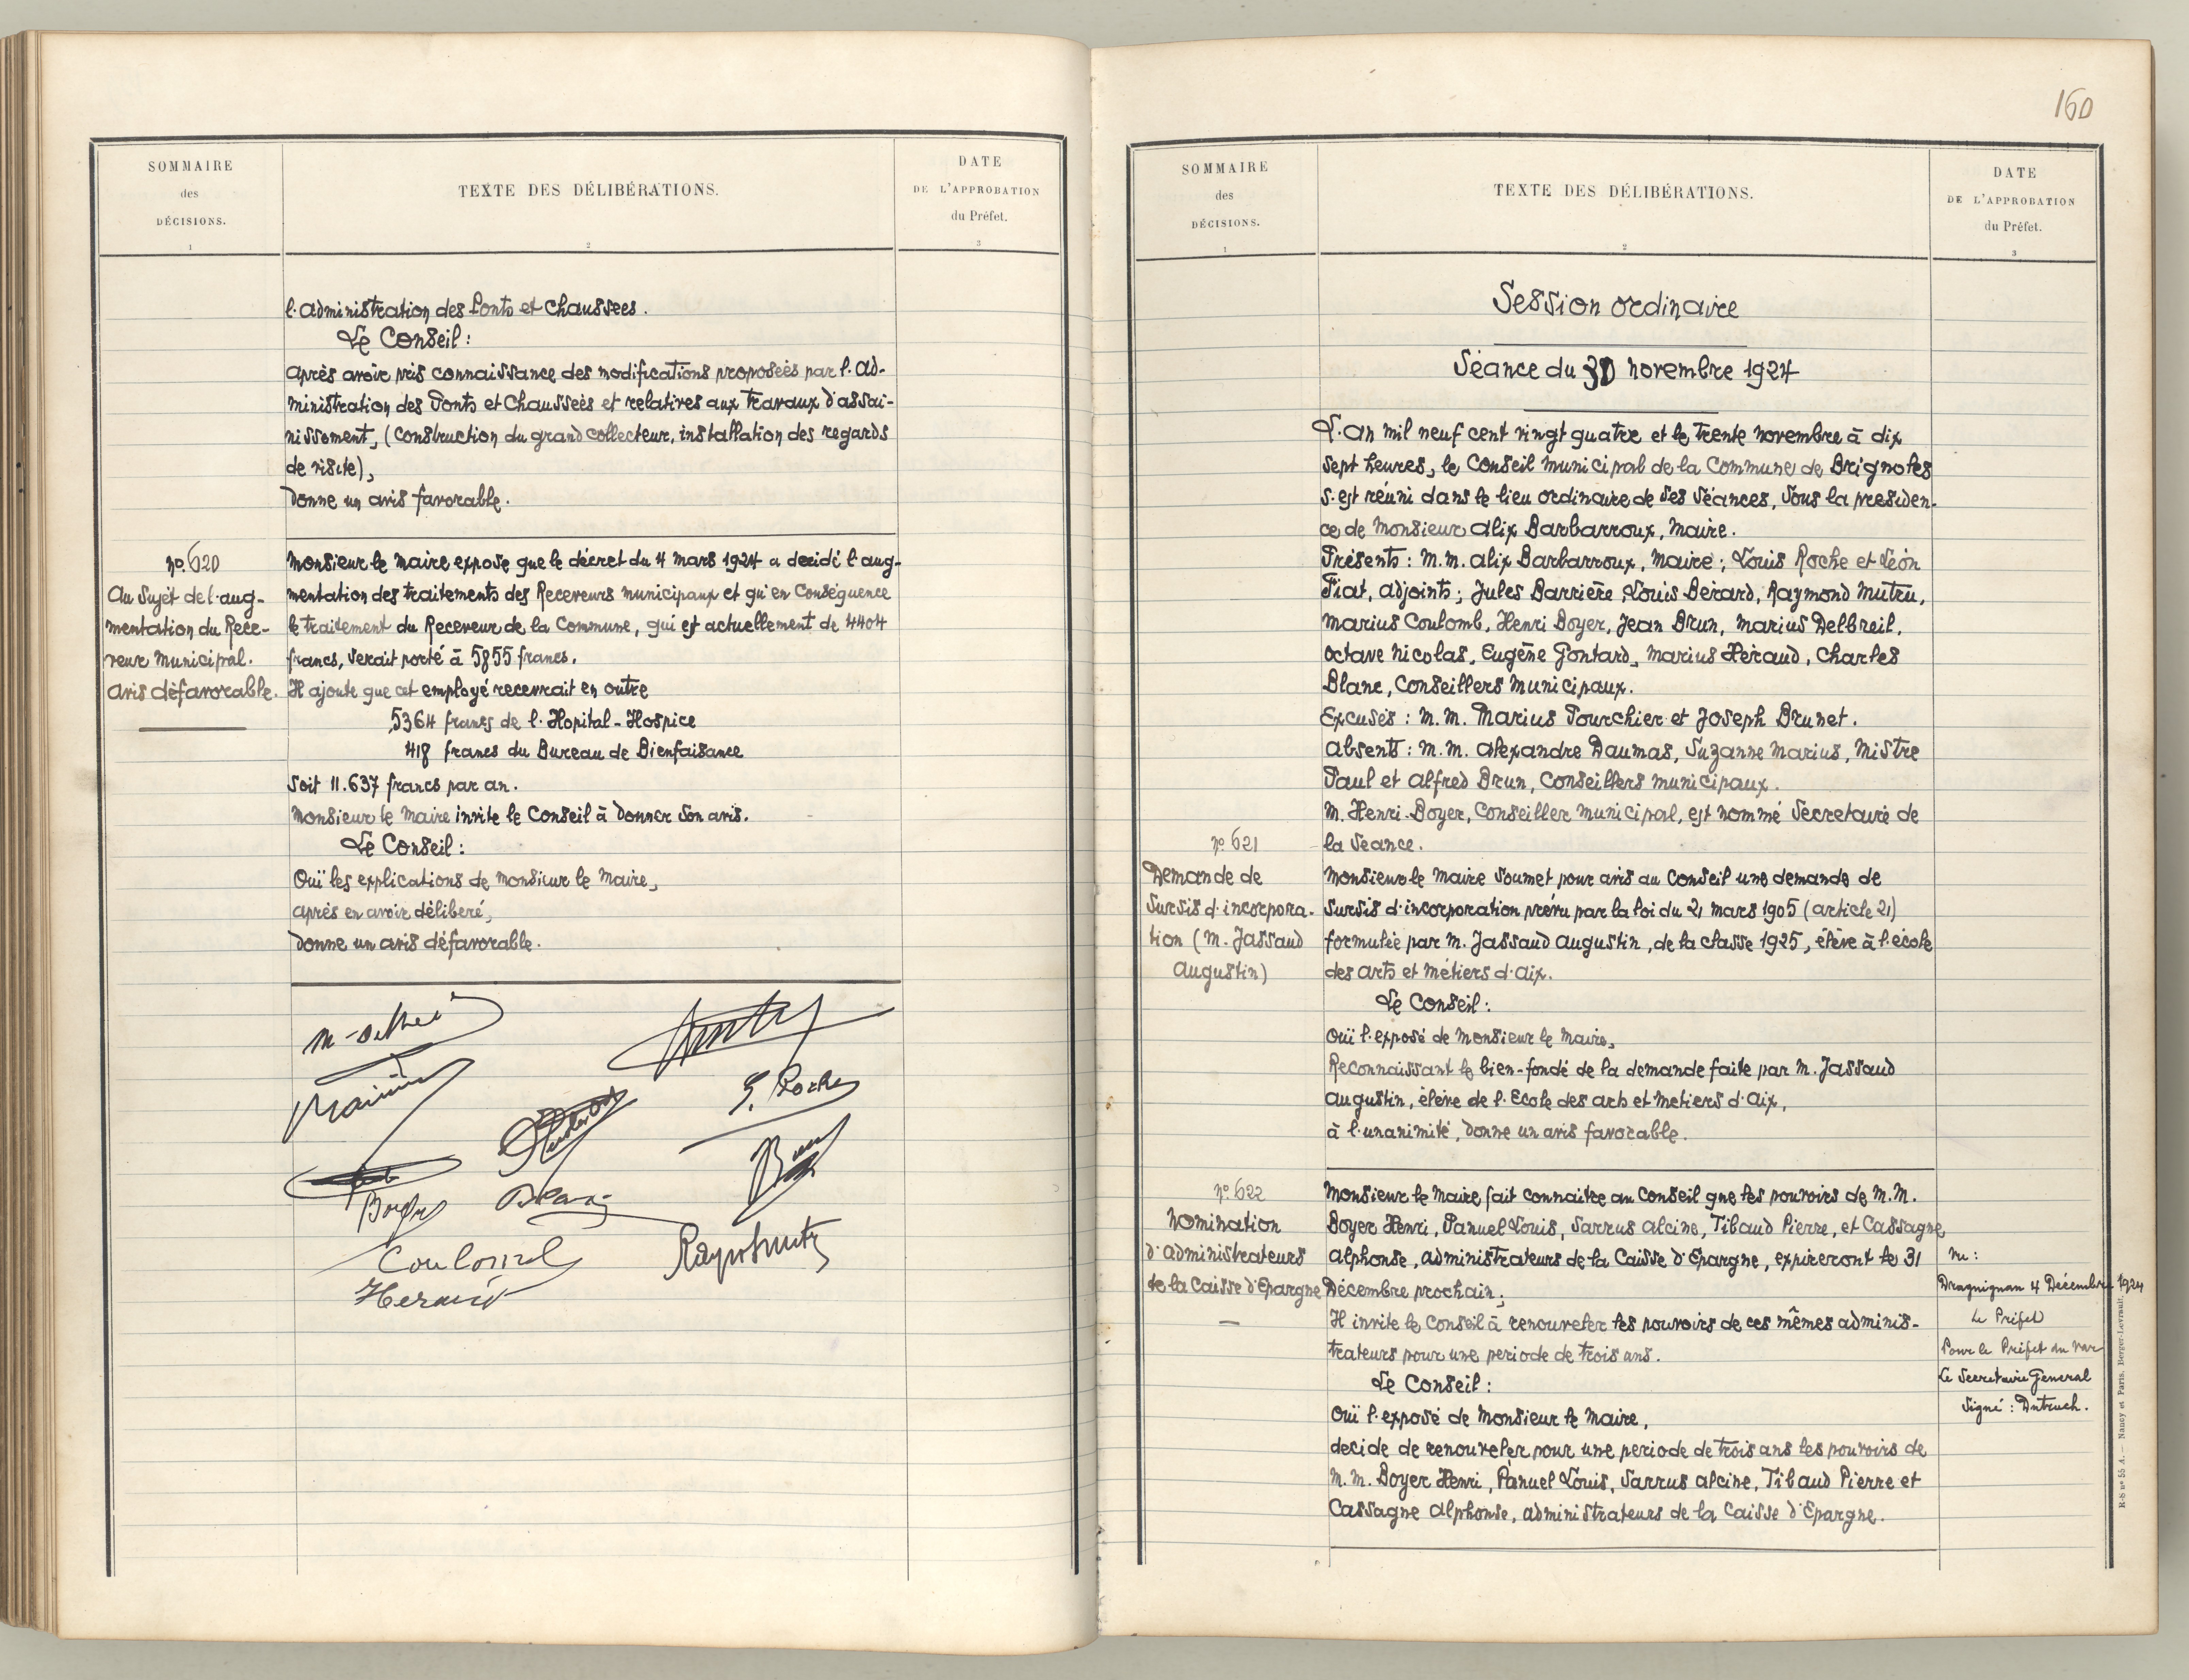 SOMMAIRE
des
DÉCISIONS.
1
TEXTE DES DÉLIBÉRATIONS.
2
DATE
DE L'APPROBATION
du Préfet.
3
l'administration des Ponts et Chaussees.
Le Conseil:
après avoir pris connaissance des modifications proposeés par l'ad-
ministration des Ponts et Chausseés et relatives aux travaux d'assai-
nissement, (construction du grand collecteur, installation des regards
de visite),
donne un avis favorable.
No. 620
Au sujet de l'aug-
mentation du Rece-
veur municipal.
avis défavorable.
Monsieur le Maire expose que le décret du 4 mars 1924 a decidé l'aug-
mentation des traitements des Receveurs municipaux et qu'en conséquence
le traitement du Receveur de la Commune, qui est actuellement de 4404
francs, serait porté à 5855 francs.
Il ajoute que cet employé recevrait en outre
5364 francs de l'Hopital-Hospice
418 francs du Bureau de Bienfaisance
soit 11.637 francs par an.
Monsieur le Maire invite le Conseil à donner son avis.
Le Conseil:
Ouï les explications de Monsieur le Maire,
après en avoir déliberé,
donne un avis défavorable.
Boyer
Coulomb
Heraud
160
SOMMAIRE
des
DÉCISIONS.
1
TEXTE DES DÉLIBÉRATIONS.
2
DATE
DE L'APPROBATION
du Préfet.
3
Session ordinaire
Séance du 30 novembre 1924
L'an mil neuf cent vingt quatre et le trente novembre à dix
sept heures, le Conseil municipal de la Commune de Brignoles
s'est réuni dans le lieu ordinaire de ses séances, sous la presiden-
ce de Monsieur Alix Barbarroux, Maire.
Présents: M.M. Alix Barbarroux, Maire; Louis Roche et Léon
Piat, adjoints; Jules Barrière, Louis Bérard, Raymond Mutru,
Marius Coulomb, Henri Boyer, Jean Brun, Marius Delbreil,
Octave Nicolas, Eugène Gontard, Marius Héraud, Charles
Blanc, Conseillers Municipaux.
Excusés: M.M. Marius Pourchier et Joseph Brunet.
Absents: M.M. Alexandre Daumas, Suzanne Marius, Mistre
Paul et Alfred Brun, Conseillers municipaux.
M. Henri Boyer, Conseiller municipal, est nommé Secretaire de
la Séance.
No. 621
Demande de
sursis d'incorpora-
tion (M. Jassaud
Augustin)
Monsieur le Maire soumet pour avis au Conseil une demande de
sursis d'incorporation prévu par la loi du 21 mars 1905 (article 21)
formulée par M. Jassaud Augustin, de la classe 1925, élève à l'école
des arts et métiers d'Aix.
Le Conseil:
Ouï l'exposé de Monsieur le Maire,
Reconnaissant le bien-fondé de la demande faite par M. Jassaud
Augustin, élève de l'Ecole des arts et metiers d'Aix,
à l'unanimité, donne un avis favorable.
No. 622
Nomination
d'administrateurs
de la Caisse d'Epargne
Monsieur le Maire fait connaitre au Conseil que les pouvoirs de M.M.
Boyer Henri, Panuel Louis, Sarrus Alcine, Tibaud Pierre, et Cassagne
Alphonse, administrateurs de la Caisse d'Epargne, expireront le 31
Décembre prochain;
Il invite le Conseil à renouveler les pouvoirs de ces mêmes adminis-
trateurs pour une periode de trois ans.
Le Conseil:
Ouï l'exposé de Monsieur le Maire,
decide de renouveler pour une periode de trois ans les pouvoirs de
M.M. Boyer Henri, Panuel Louis, Sarrus Alcine, Tibaud Pierre et
Cassagne Alphonse, administrateurs de la Caisse d'Epargne.
Vu:
Draguignan 4 Décembre 1924
Le Préfet
Pour le Préfet du Var
Le Secretaire General
Signé: Dutruch.
R-S nº 55 A. — Nancy et Paris. Berger-Levrault.